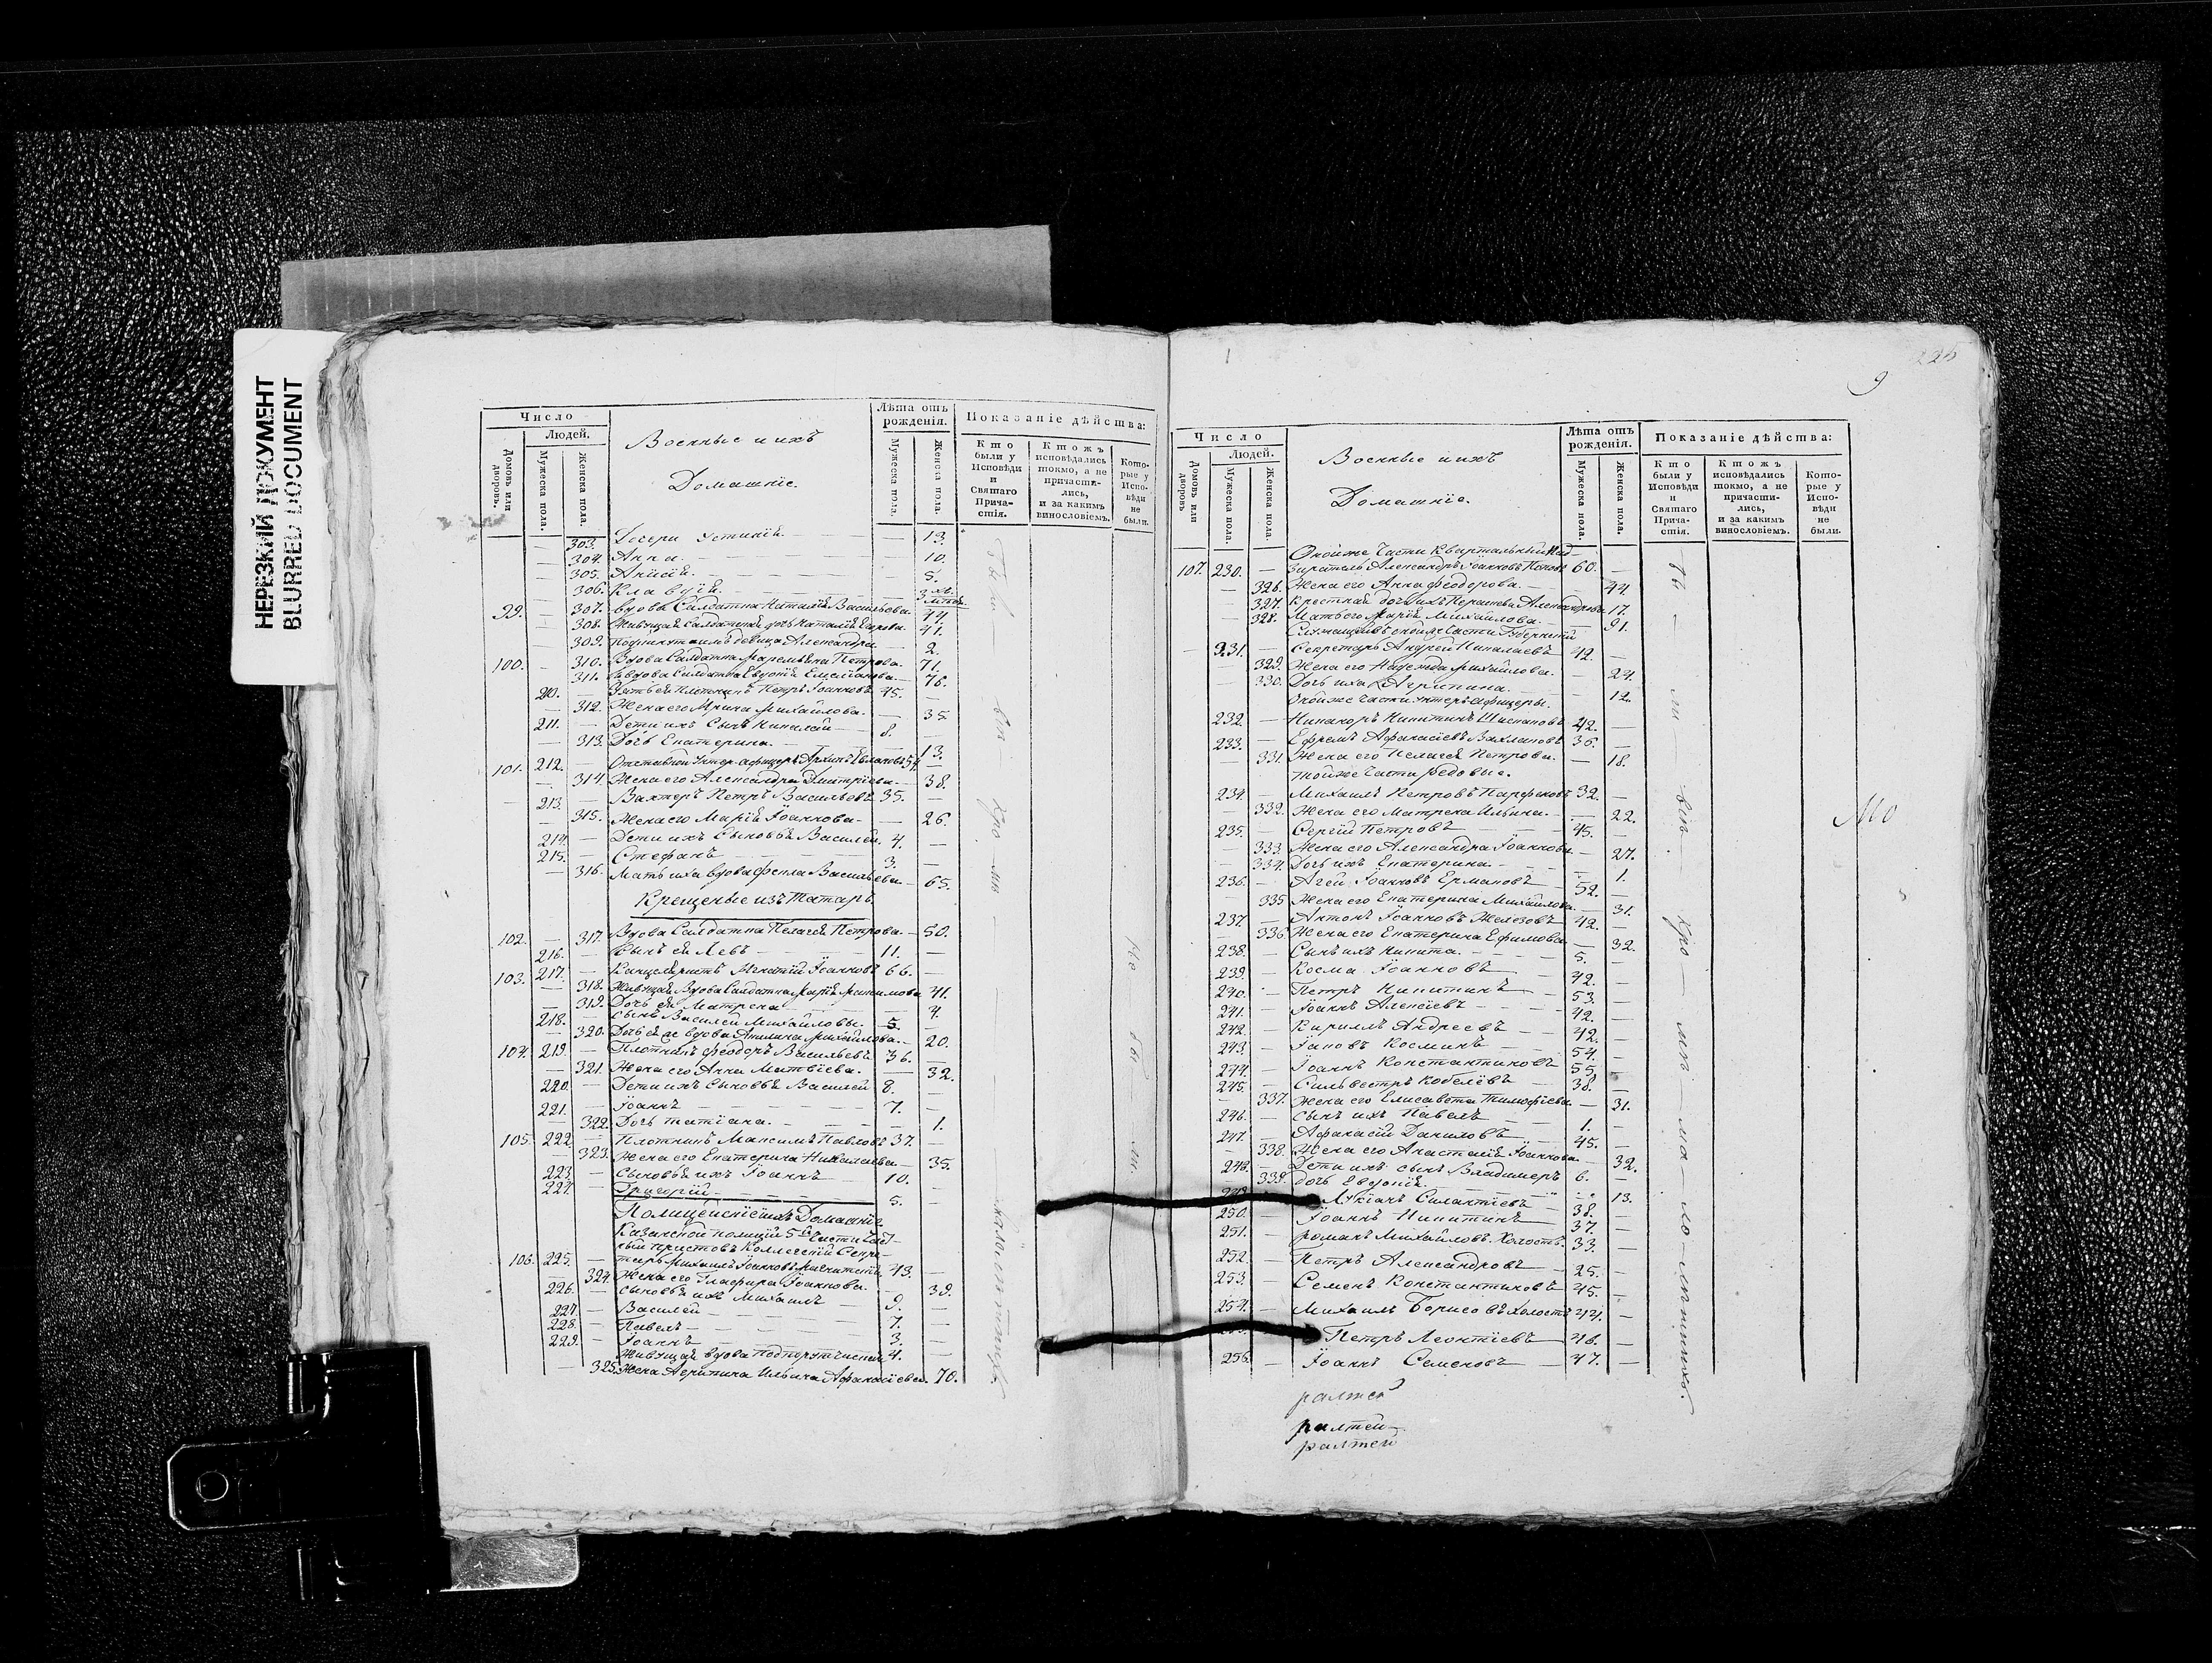 НЕРЕЗКИЙ ДОКУМЕНТ
BLURRED DOCUMENT
Число
Людей.
Домовъ или дворовъ.
Мужеска пола.
Женска пола.
Военные и ихъ
Домашніе.
Лѣта отъ рожденія.
Мужеска пола.
Женска пола.
Показаніе дѣйства:
Кто были у Исповѣди и Святаго Прича-стія.
Ктожъ исповѣдались токмо, а не причасти-лись, и за какимъ винословіемъ.
Кото-рые у Испо-вѣди не были.
— 303. Дочери Устинія — 13.
— 304. Анна — 10.
— 305. Анисія — 5.
— 306. Клавдія — 3
99. — 307. Вдова Салдатка Наталія Васильева 44.
— 308. Живущая Салдатская дочь Наталія 41.
— 309. девица Александра 2.
100. — 310. Вдова Салдатка Маремьяна Петрова 71.
— 311. Вдова Салдатка Евдокія Емелianова 76.
210. — Зять ея Плотникъ Петръ Іоанновъ 45. —
— 312. Жена его Ирина Михайлова — 35.
211. — Дети ихъ Сынъ Николай 8. —
— 313. Дочь Екатерина — 13.
101. 212. — Отставной Унтер-афицеръ Архипъ 54. —
— 314. Жена его Александра Дмитріева — 38.
213. — Вахтеръ Петръ Васильевъ 35. —
— 315. Жена его Марія Іоаннова — 26.
214. — Дети ихъ Сыновья Василей 4. —
215. — Стефанъ 3. —
— 316. Мать иха вдова Фекла Васильева — 65.
Крещеные изъ Татаръ.
102. — 317. Вдова Салдатка Пелагея Петрова — 50.
216. — Сынъ ея Левъ 11. —
103. 217. — Канцеляристъ Игнатій Іоанновъ 66. —
— 318. Живущая Вдова Салдатка Марія Максимова 41.
— 319. Дочь ея Матрена — 4.
218. — Сынъ Василей Михайловы 5. —
— 320. Дочь ея же вдова Акилина Михайлова — 20.
104. 219. — Плотникъ Феодоръ Васильевъ 36. —
— 321. Жена его Анна Матвіева — 32.
220. — Дети ихъ Сыновья Василей 8. —
221. — Іоаннъ 7. —
— 322. Дочь Татіана — 1.
105. 222. — Плотникъ Максимъ Павловъ 37. —
— 323. Жена его Екатерина Николаева — 35.
223. — Сыновья ихъ Іоаннъ 10. —
224. — Григорій 5. —
Полицейскіе и ихъ Домашніе
Казанской полиціи 5й Части Част-
ный приставъ Коллежскій Секре-
106. 225. — тарь Михаилъ Іоанновъ 43. —
— 324. Жена его Глафира Іоаннова — 39.
226. — Сыновья ихъ Михаилъ 9. —
227. — Василей 7. —
228. — Павелъ 3. —
229. — Іоаннъ 4. —
Живущая вдова Подпорутческая
— 325. Жена Акрипина Ильина Афанасіева 70.
9
Число
Людей.
Домовъ или дворовъ
Мужеска пола.
Женска пола.
Военные и ихъ
Домашніе.
Лѣта отъ рожденія.
Мужеска пола.
Женска пола.
Показаніе дѣйства:
Кто были у Исповѣди и Святаго Прича-стія.
Ктожъ исповѣдались токмо, а не причасти-лись, и за какимъ винословіемъ.
Кото-рые у Испо-вѣди не были.
Онойже Части Квартальный Над-
107. 230. — зиратель Александръ Іоанновъ Поповъ 60. —
— 326. Жена его Анна Феодорова — 44.
— 327. Крестная дочь ихъ Александрова 17.
— 328. Мать его Марія Михайлова — 91.
Служащей въ онойже Части Губернской
231. — Секретарь Андрей Николаевъ 42. —
— 329. Жена его Надежда Михайлова — 24.
— 330. Дочь иха Агрипина — 12.
Онойже Части Унтеръ-афицеры.
232. — Никаноръ Никитинъ 42. —
233. — Ефремъ Афанасіевъ 36. —
— 331. Жена его Пелагея Петрова — 18.
Тойже Части рядовые.
234. — Михаилъ Петровъ Парфеновъ 32. —
— 332. Жена его Матрена Ильина — 22.
235. — Сергій Петровъ 45. —
— 333. Жена его Александра Іоаннова — 27.
— 334. Дочь ихъ Екатерина — 1.
236. — Агей Іоанновъ Ермаковъ 52. —
— 335 Жена его Екатерина Михайлова — 31.
237. — Антонъ Іоанновъ Железовъ 42. —
— 336. Жена его Екатерина Ефимова — 32.
238. — Сынъ ихъ Никита 5. —
239. — Косма Іоанновъ 42. —
240. — Петръ Никитинъ 53. —
241. — Іоаннъ Алексіевъ 42. —
242. — Кирилъ Андреевъ 42. —
243. — Іаковъ Косминъ 54. —
244. — Іоаннъ Константиновъ 55. —
245. — Сильвестръ Кобелёвъ 38. —
— 337. Жена его Елисавета Тимофіева — 31.
246. — Сынъ ихъ Павелъ 1. —
247. — Афанасій Даниловъ 45. —
— 338. Жена его Анастасія Іоаннова — 32.
248. — Дети ихъ сынъ Владимеръ 6. —
— 339. дочь Евдокія — 13.
249. Лукіанъ Силантіевъ 38.
250. — Іоаннъ Никитинъ 37. —
251. — Романъ Михайловъ. Холостъ. 33. —
252. — Петръ Александровъ 25. —
253. — Семенъ Константиновъ 45. —
254. — Михаилъ Борисовъ Холостъ 44. —
Петръ Леонтіевъ 46. —
256. — Іоаннъ Семеновъ 47. —